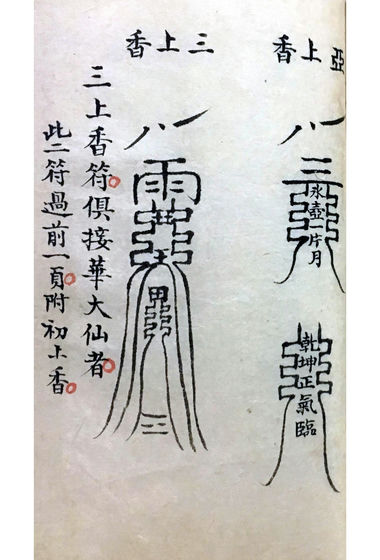 亞上香
三
氷壺一片月
乾坤正氣臨
三上香
雨
三上香符俱接華大仙者
此二符過前一頁附初上香